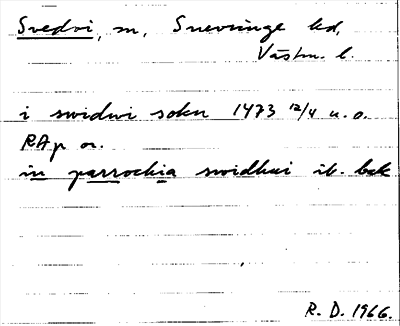 Svedvi, sn, Snevringe hd,
Västm. l.
i swidwi sokn 1473 12/4 u. o.
RAp or.
in parrochia swidhui ib. bak
R. D. 1966.